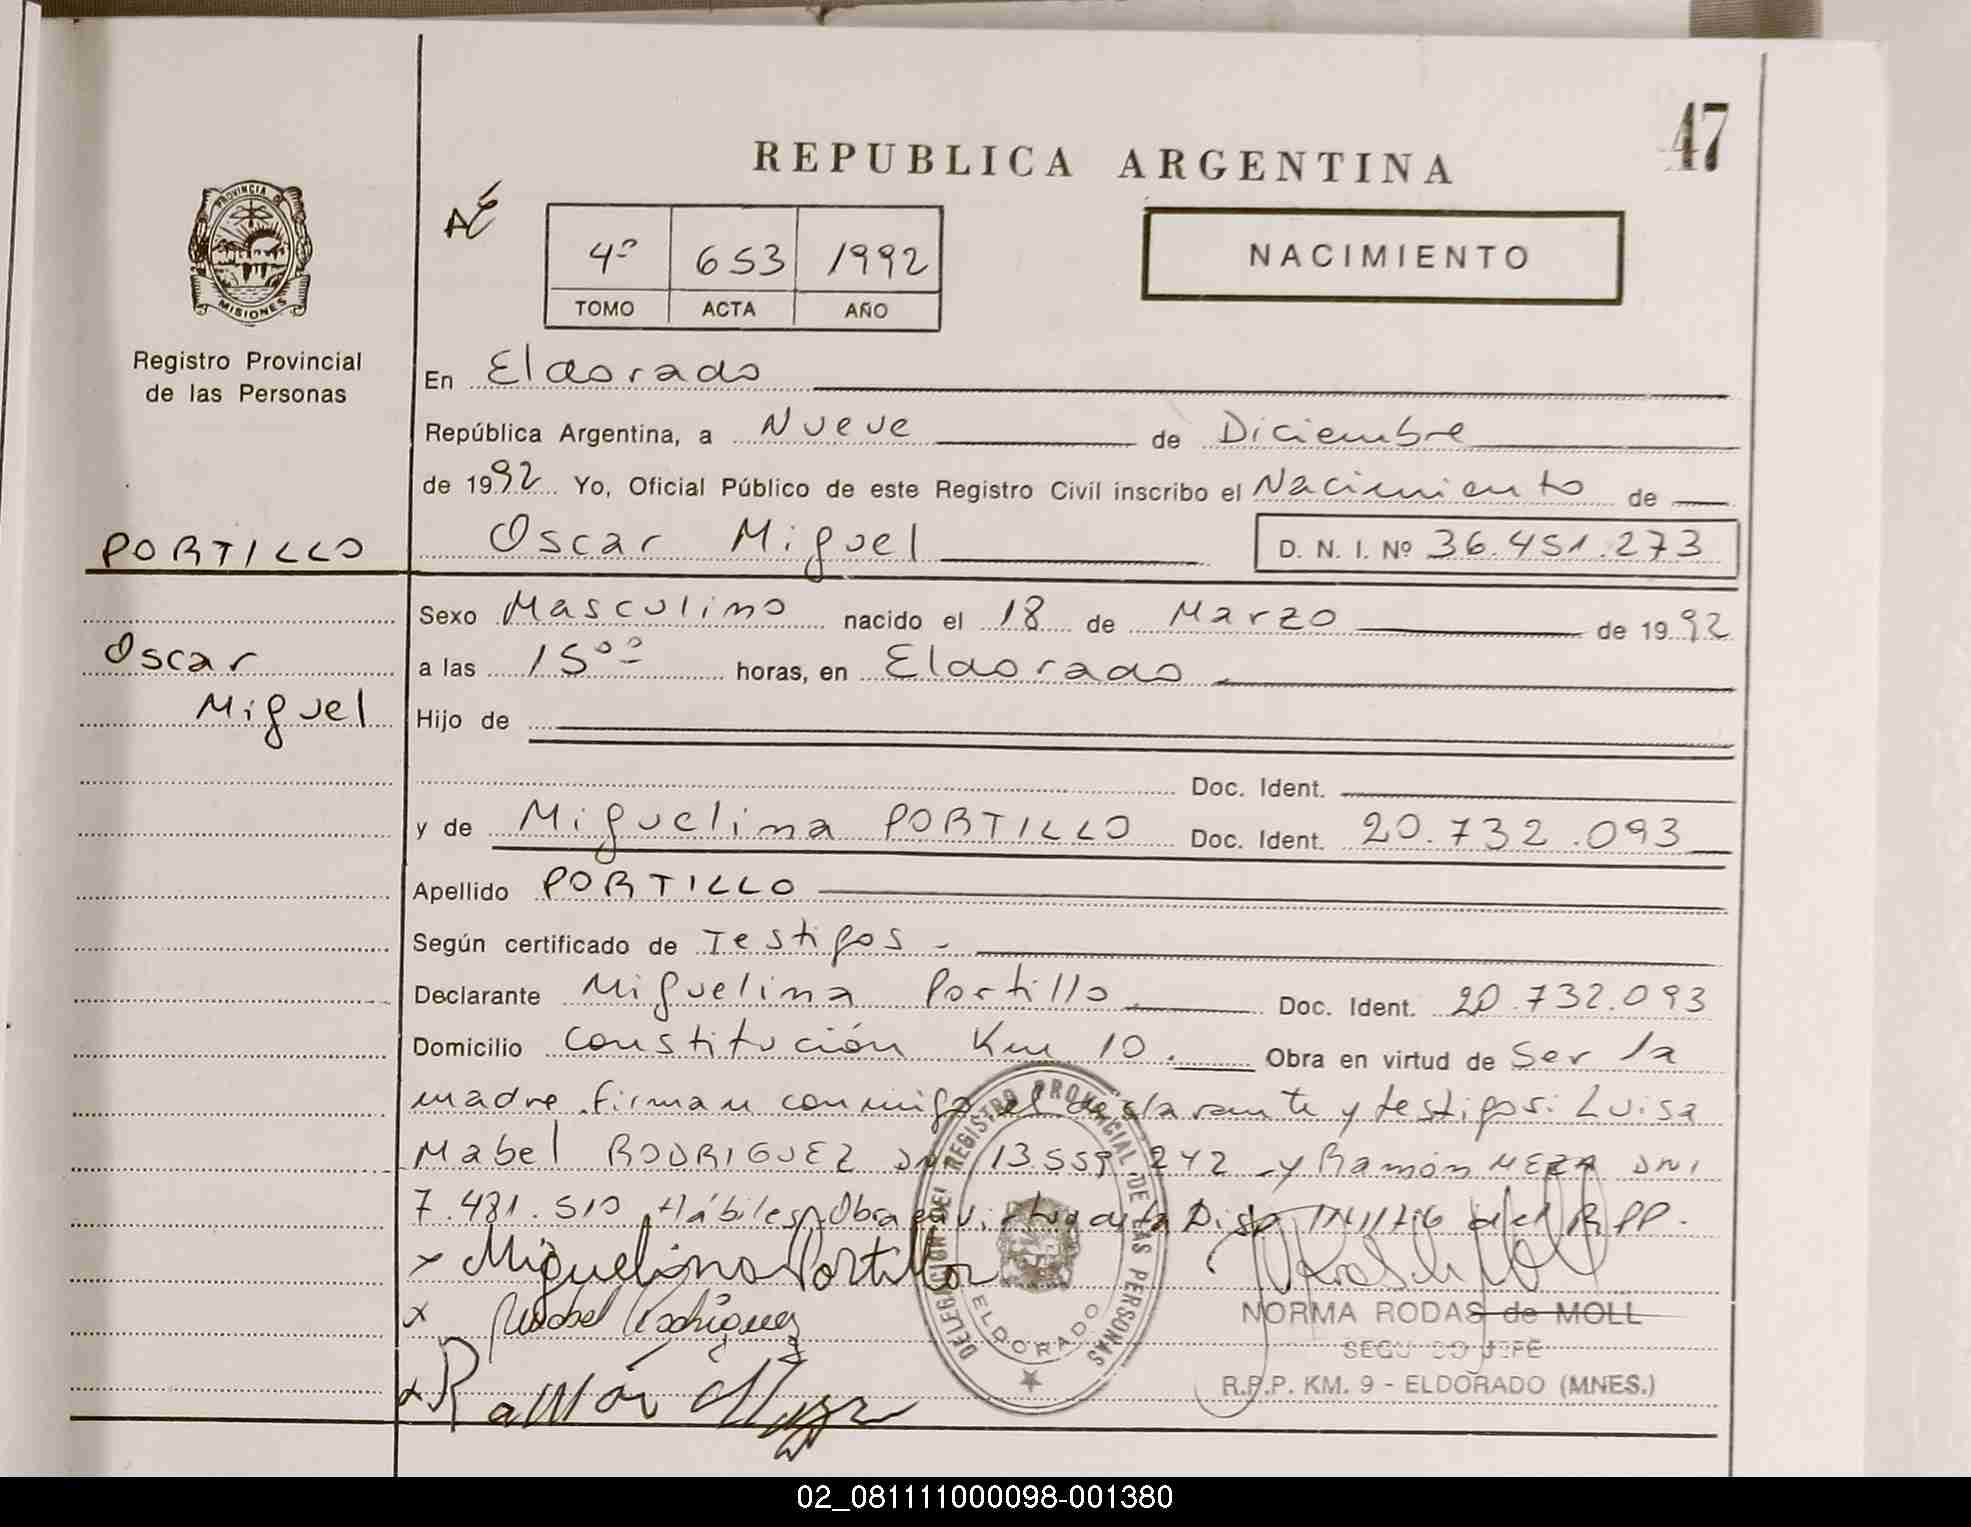 47
REPUBLICA ARGENTINA
PROVINCIA
MISIONES
Registro Provincial
de las Personas
4º 653 1992
TOMO ACTA AÑO
NACIMIENTO
En Eldorado
República Argentina, a Nueve de Diciembre
de 1992 Yo, Oficial Público de este Registro Civil inscribo el Nacimiento de
PORTILLO
Oscar Miguel D. N. I. Nº 36.451.273
Sexo Masculino nacido el 18 de Marzo de 1992
Oscar
a las 15ºº horas, en Eldorado
Miguel
Hijo de
Doc. Ident.
y de Miguelina PORTILLO Doc. Ident. 20.732.093
Apellido PORTILLO
Según certificado de Testigos -
Declarante Miguelina Portillo Doc. Ident. 20.732.093
Domicilio Constitución Km 10. Obra en virtud de Ser la
madre. firman conmigo el declarante y testigos: Luisa
Mabel RODRIGUEZ DNI 13.559.242 y Ramón MEZA DNI
7.481.510 Hábiles. Obra en virtud de la Disp. del RPP.
x Miguelina Portillo
x Mabel Rodriguez
x Ramón
DELEGACION DEL REGISTRO PROVINCIAL DE LAS PERSONAS
ELDORADO
NORMA RODAS de MOLL
SEGUNDO JEFE
R.P.P. KM. 9 - ELDORADO (MNES.)
02_081111000098-001380